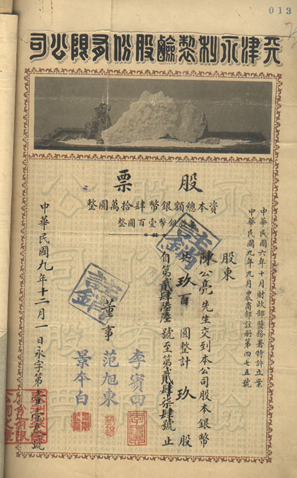 013
天津永利製鹼股份有限公司
股票
資本總額銀幣肆拾萬圓整
每股銀幣壹百圓整
中華民國六年十月財政部鹽務署特許立案
中華民國九年九月農商部註册第四七五號
股東
陳公亮先生交到本公司股本銀幣
玖百圓整計玖股
自第貳肆陸
號至第貳肆柒肆號止
董事
李賓四
范旭東
景本白
註銷
註銷
中華民國九年十二月一日永字第
號